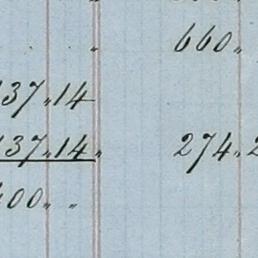 660 "
37 " 14
137 " 14 " 274 " 2
400 " "